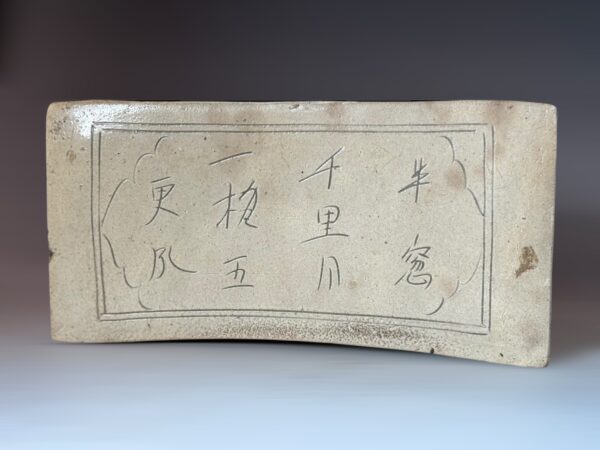 半窓
千里月
一枕五
更风